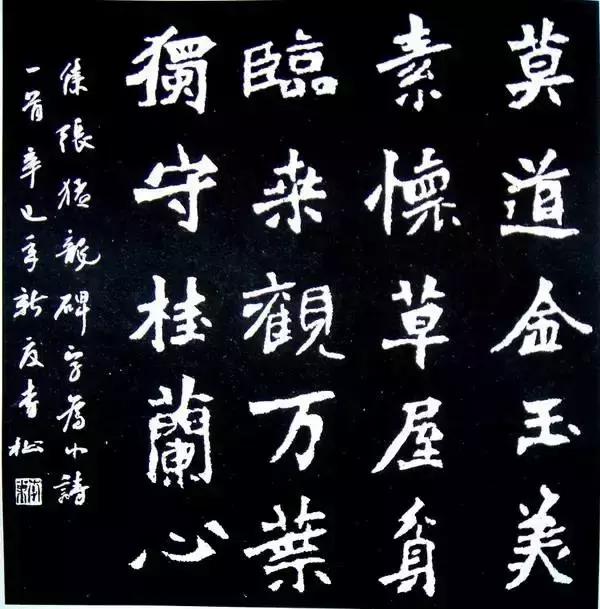 莫道金玉美
素懷草屋貧
臨来觀万葉
獨守桂蘭心
集張猛龍碑字為小詩
一首辛巳年新松